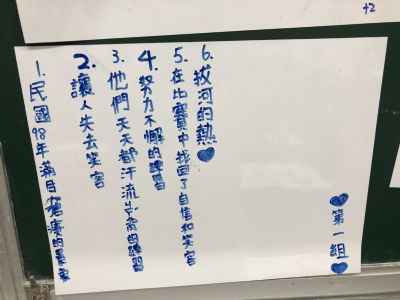 +2
1.民國98年滿目瘡痍的景象
2.讓人失去笑容
3.他們天天都汗流浹背的練習
4.努力不懈的練習
5.在比賽中找回了自信和笑容
6.拔河的熱♥
♥第一組♥